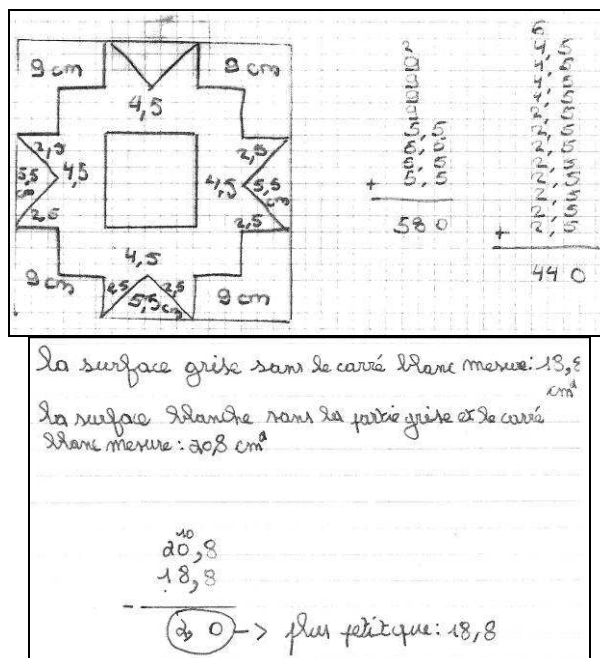 9 cm 9 cm
4,5
2,5 2,5
5,5 cm 4,5 4,5 5,5 cm
2,5 2,5
4,5
2,5 2,5
9 cm 5,5 cm 9 cm
2
9
9
9
9
5,5
5,5
5,5
+ 5,5
58 0
4,5
4,5
4,5
4,5
2,5
2,5
2,5
2,5
2,5
2,5
2,5
+ 2,5
44 0
la surface grise sans le carré blanc mesure: 18,8
cm²
la surface blanche sans la partie grise et le carré
blanc mesure: 20,8 cm²
10
20,8
18,8
-
2, 0 -> plus petit que: 18,8